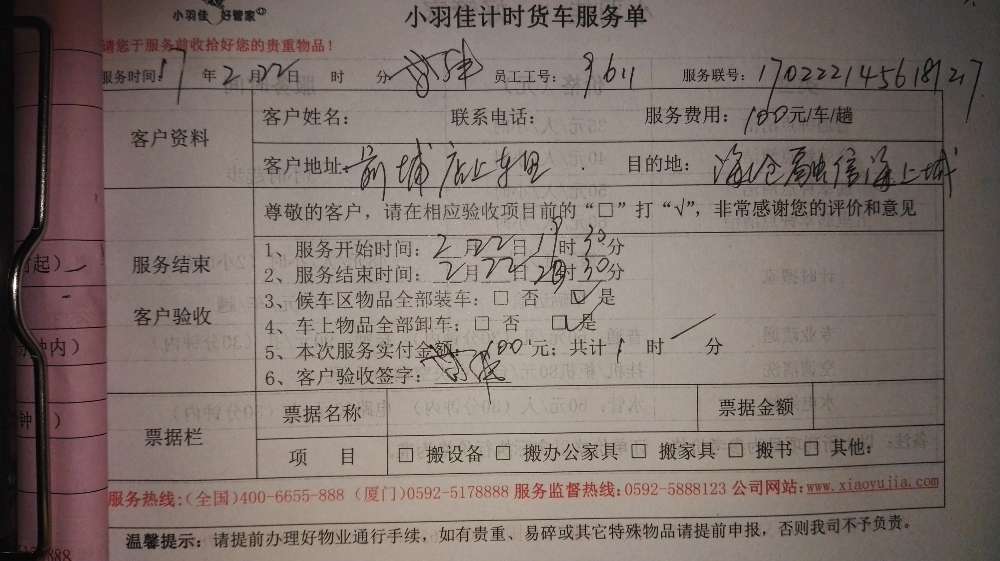 小羽佳 好管家
小羽佳计时货车服务单
请您于服务前收拾好您的贵重物品！
服务时间：17 年 2 月 22 日 时 分 员工工号：9611 服务联号：170222145618127
客户资料
客户姓名： 联系电话： 服务费用：100元/车/趟
客户地址：前埔店上东里 目的地：海沧融信海上城
尊敬的客户，请在相应验收项目前的“□”打“√”，非常感谢您的评价和意见
服务结束
客户验收
1、服务开始时间：2 月 22 日 19 时 30 分
2、服务结束时间：2 月 22 日 20 时 30 分
3、候车区物品全部装车：□ 否 ☑ 是
4、车上物品全部卸车：□ 否 ☑ 是
5、本次服务实付金额：100 元；共计 1 时 分
6、客户验收签字：
票据栏
票据名称 票据金额
项 目 □ 搬设备 □ 搬办公家具 □ 搬家具 □ 搬书 □ 其他：
服务热线：（全国）400-6655-888（厦门）0592-5178888 服务监督热线：0592-5888123 公司网站：www.xiaoyujia.com
温馨提示：请提前办理好物业通行手续，如有贵重、易碎或其它特殊物品请提前申报，否则我司不予负责。